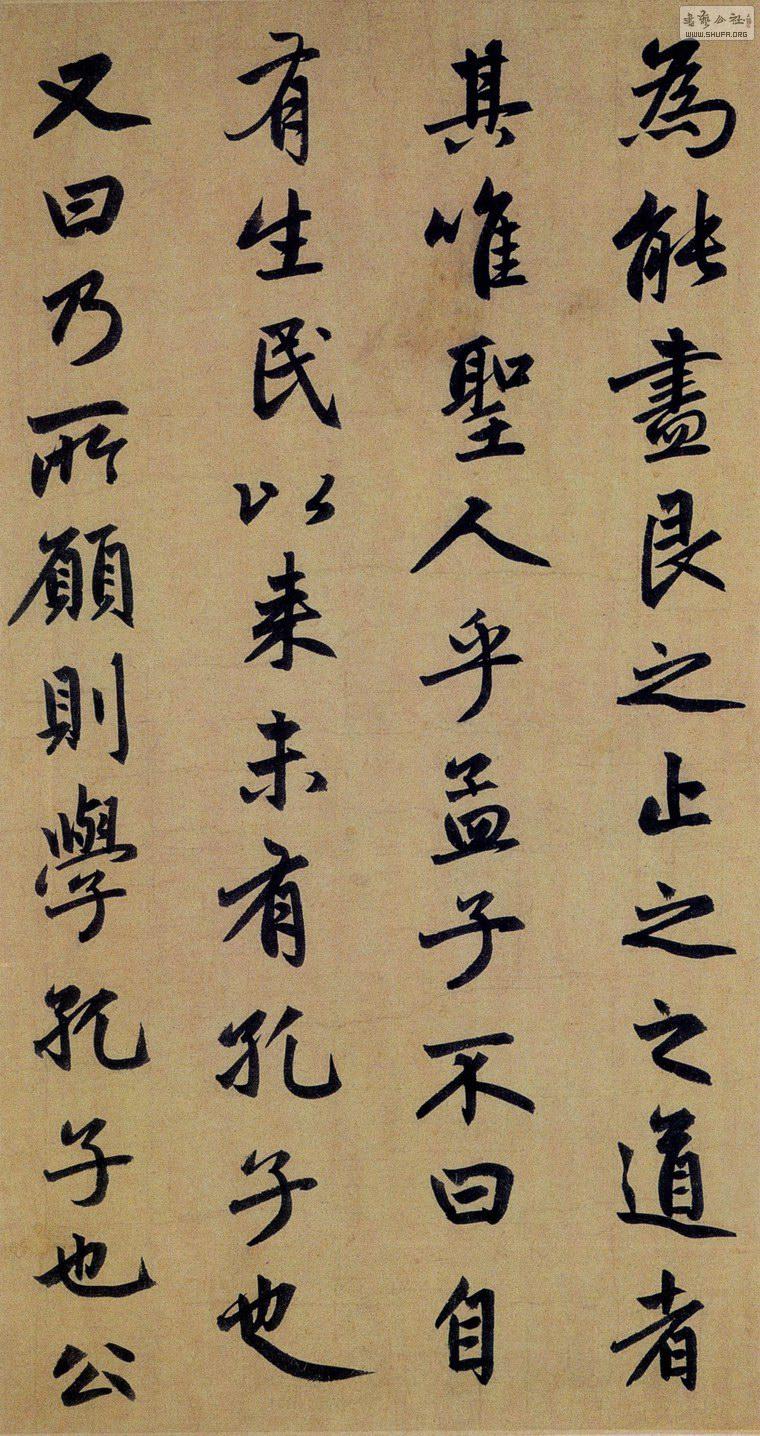 為能盡艮之止之之道者
其唯聖人乎孟子不曰自
有生民以来未有孔子也
又曰乃所願則學孔子也公
書藝公社
WWW.SHUFA.ORG